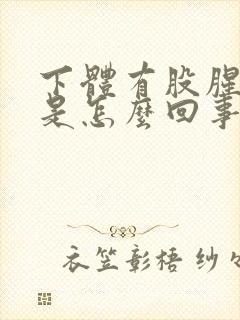 下體有股腥
是怎麼回事
衣笠彰梧 纱